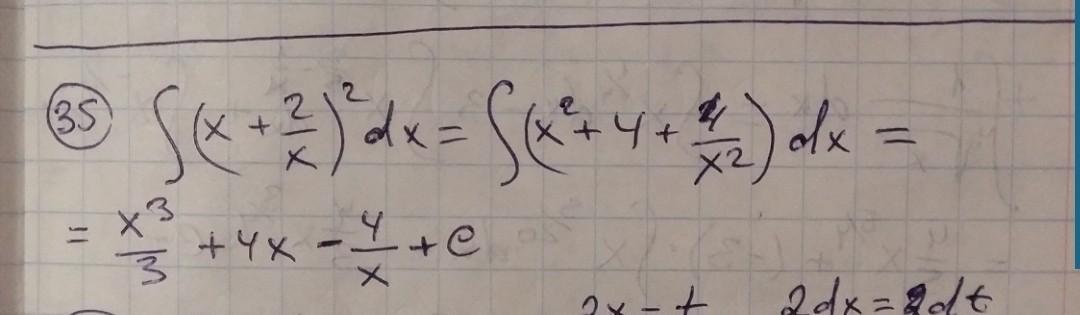 35 ∫(x + 2/x)² dx = ∫(x² + 4 + 4/x²) dx =
= x³/3 + 4x - 4/x + C
2x - t 2dx = 2dt